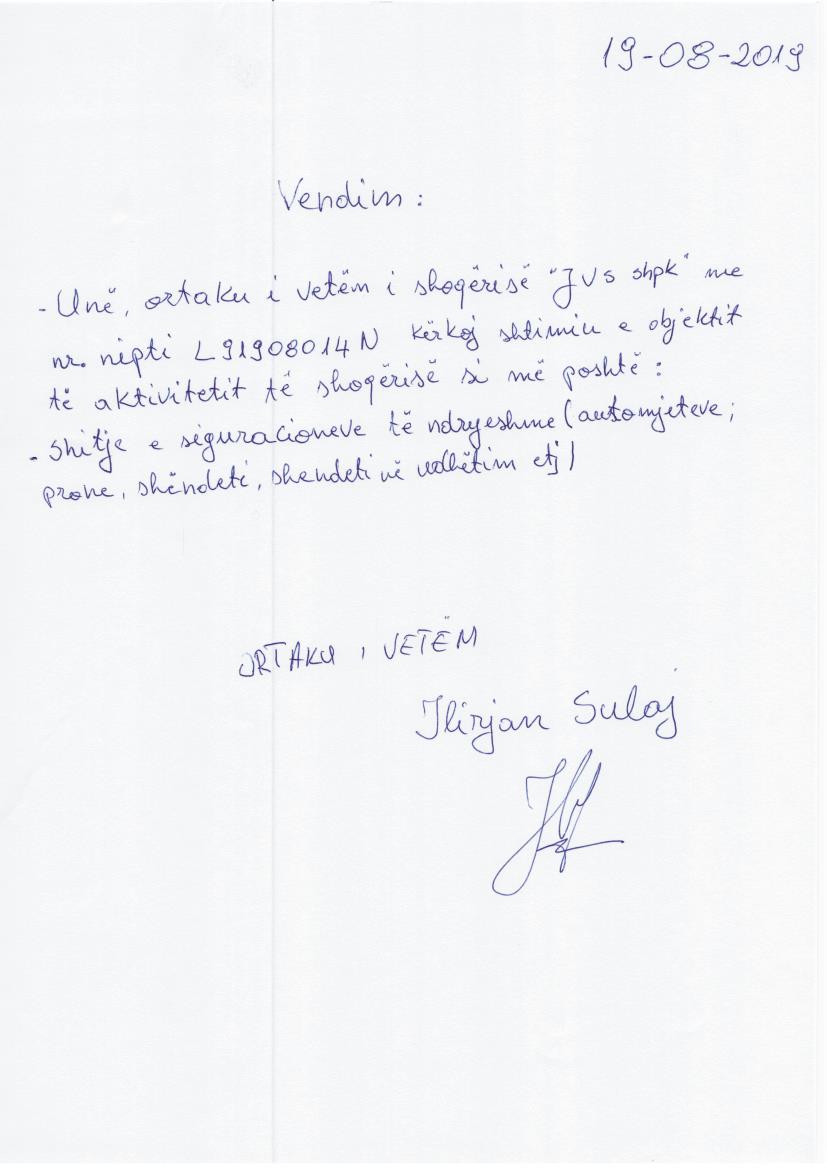 19-08-2019
Vendim :
- Unë, ortaku i vetëm i shoqërisë "JVS shpk" me
nr. nipti L91908014N kërkoj shtimin e objektit
të aktivitetit të shoqërisë si më poshtë :
- Shitje e siguracioneve të ndryeshme (automjeteve;
prone, shëndeti, shendeti në udhëtim etj)
ORTAKU I VETËM
Ilirjan Sulaj